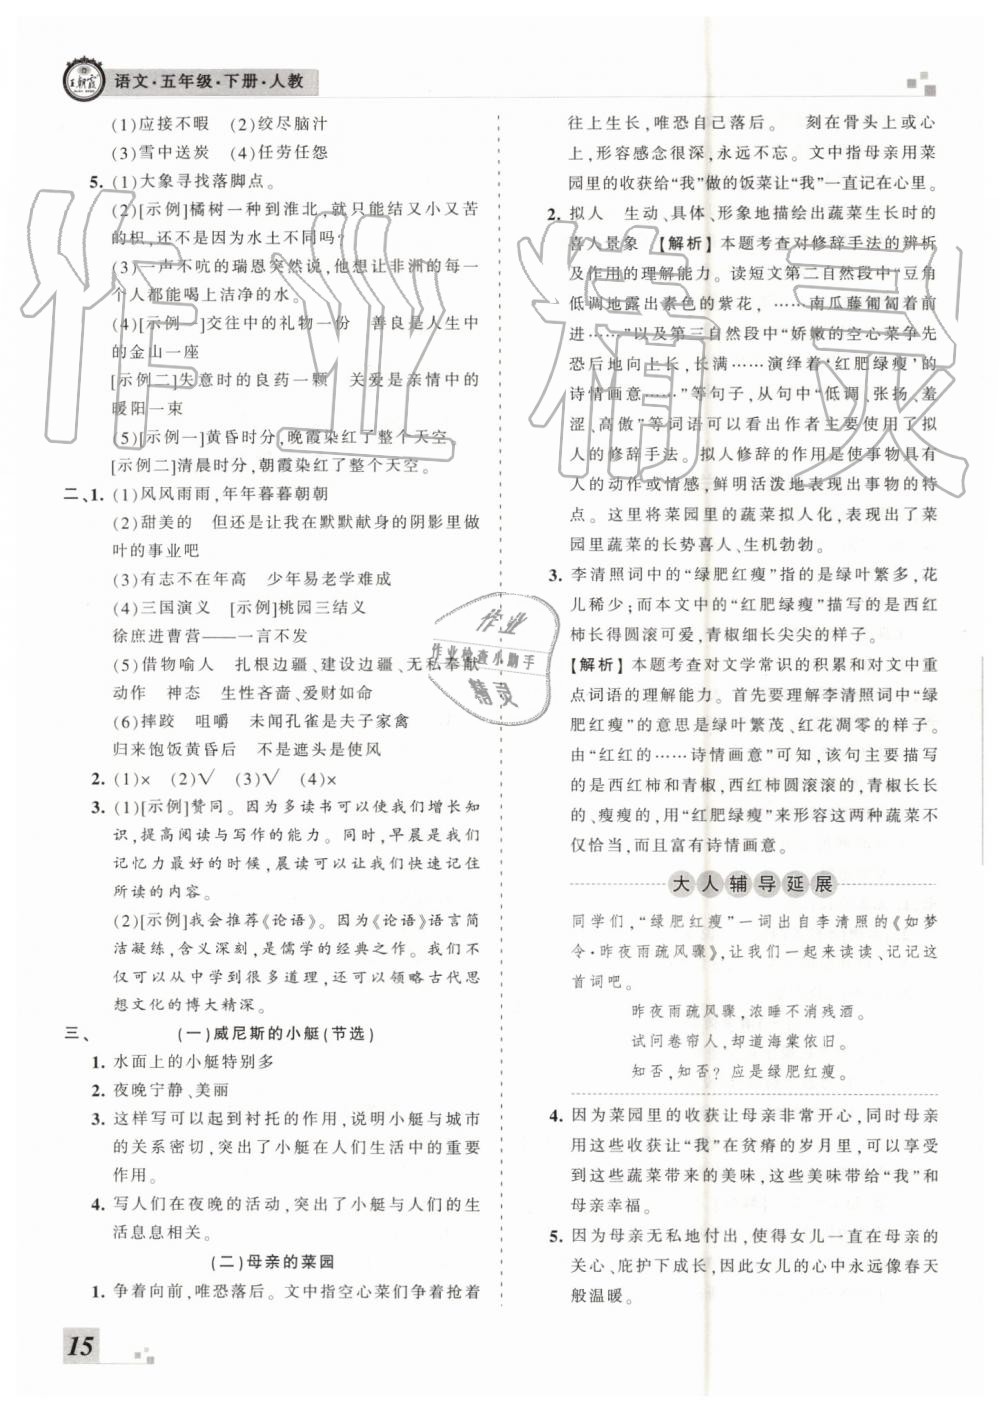 王朝霞
语文·五年级·下册·人教
(1)应接不暇 (2)绞尽脑汁
(3)雪中送炭 (4)任劳任怨
5. (1)大象寻找落脚点。
(2)[示例]橘树一种到淮北,就只能结又小又苦
的枳,还不是因为水土不同吗?
(3)一声不吭的瑞恩突然说,他想让非洲的每一
个人都能喝上洁净的水。
(4)[示例一]交往中的礼物一份 善良是人生中
的金山一座
[示例二]失意时的良药一颗 关爱是亲情中的
暖阳一束
(5)[示例一]黄昏时分,晚霞染红了整个天空。
[示例二]清晨时分,朝霞染红了整个天空。
二、1. (1)风风雨雨,年年暮暮朝朝
(2)甜美的 但还是让我在默默献身的阴影里做
叶的事业吧
(3)有志不在年高 少年易老学难成
(4)三国演义 [示例]桃园三结义
徐庶进曹营——一言不发
(5)借物喻人 扎根边疆、建设边疆、无私奉献
动作 神态 生性吝啬、爱财如命
(6)摔跤 咀嚼 未闻孔雀是夫子家禽
归来饱饭黄昏后 不是遮头是使风
2. (1)× (2)√ (3)√ (4)×
3. (1)[示例]赞同。因为多读书可以使我们增长知
识,提高阅读与写作的能力。同时,早晨是我们
记忆力最好的时候,晨读可以让我们快速记住
所读的内容。
(2)[示例]我会推荐《论语》。因为《论语》语言简
洁凝练,含义深刻,是儒学的经典之作。我们不
仅可以从中学到很多道理,还可以领略古代思
想文化的博大精深。
三、 (一)威尼斯的小艇(节选)
1. 水面上的小艇特别多
2. 夜晚宁静、美丽
3. 这样写可以起到衬托的作用,说明小艇与城市
的关系密切,突出了小艇在人们生活中的重要
作用。
4. 写人们在夜晚的活动,突出了小艇与人们的生
活息息相关。
(二)母亲的菜园
1. 争着向前,唯恐落后。文中指空心菜们争着抢着
往上生长,唯恐自己落后。 刻在骨头上或心
上,形容感念很深,永远不忘。文中指母亲用菜
园里的收获给“我”做的饭菜让“我”一直记在心里。
2. 拟人 生动、具体、形象地描绘出蔬菜生长时的
喜人景象 【解析】本题考查对修辞手法的辨析
及作用的理解能力。读短文第二自然段中“豆角
低调地露出素色的紫花,……南瓜藤匍匐着前
进……”以及第三自然段中“娇嫩的空心菜争先
恐后地向上长,长满……演绎着‘红肥绿瘦’的
诗情画意……”等句子,从句中“低调、张扬、羞
涩、高傲”等词语可以看出作者主要使用了拟
人的修辞手法。拟人修辞的作用是使事物具有
人的动作或情感,鲜明活泼地表现出事物的特
点。这里将菜园里的蔬菜拟人化,表现出了菜
园里蔬菜的长势喜人、生机勃勃。
3. 李清照词中的“绿肥红瘦”指的是绿叶繁多,花
儿稀少;而本文中的“红肥绿瘦”描写的是西红
柿长得圆滚可爱,青椒细长尖尖的样子。
【解析】本题考查对文学常识的积累和对文中重
点词语的理解能力。首先要理解李清照词中“绿
肥红瘦”的意思是绿叶繁茂、红花凋零的样子。
由“红红的……诗情画意”可知,该句主要描写
的是西红柿和青椒,西红柿圆滚滚的,青椒长长
的、瘦瘦的,用“红肥绿瘦”来形容这两种蔬菜不
仅恰当,而且富有诗情画意。
大人辅导延展
同学们,“绿肥红瘦”一词出自李清照的《如梦
令·昨夜雨疏风骤》,让我们一起来读读、记记这
首词吧。
昨夜雨疏风骤,浓睡不消残酒。
试问卷帘人,却道海棠依旧。
知否,知否?应是绿肥红瘦。
4. 因为菜园里的收获让母亲非常开心,同时母亲
用这些收获让“我”在贫瘠的岁月里,可以享受
到这些蔬菜带来的美味,这些美味带给“我”和
母亲幸福。
5. 因为母亲无私地付出,使得女儿一直在母亲的
关心、庇护下成长,因此女儿的心中永远像春天
般温暖。
15
作业精灵
作业
作业检查小助手
精灵